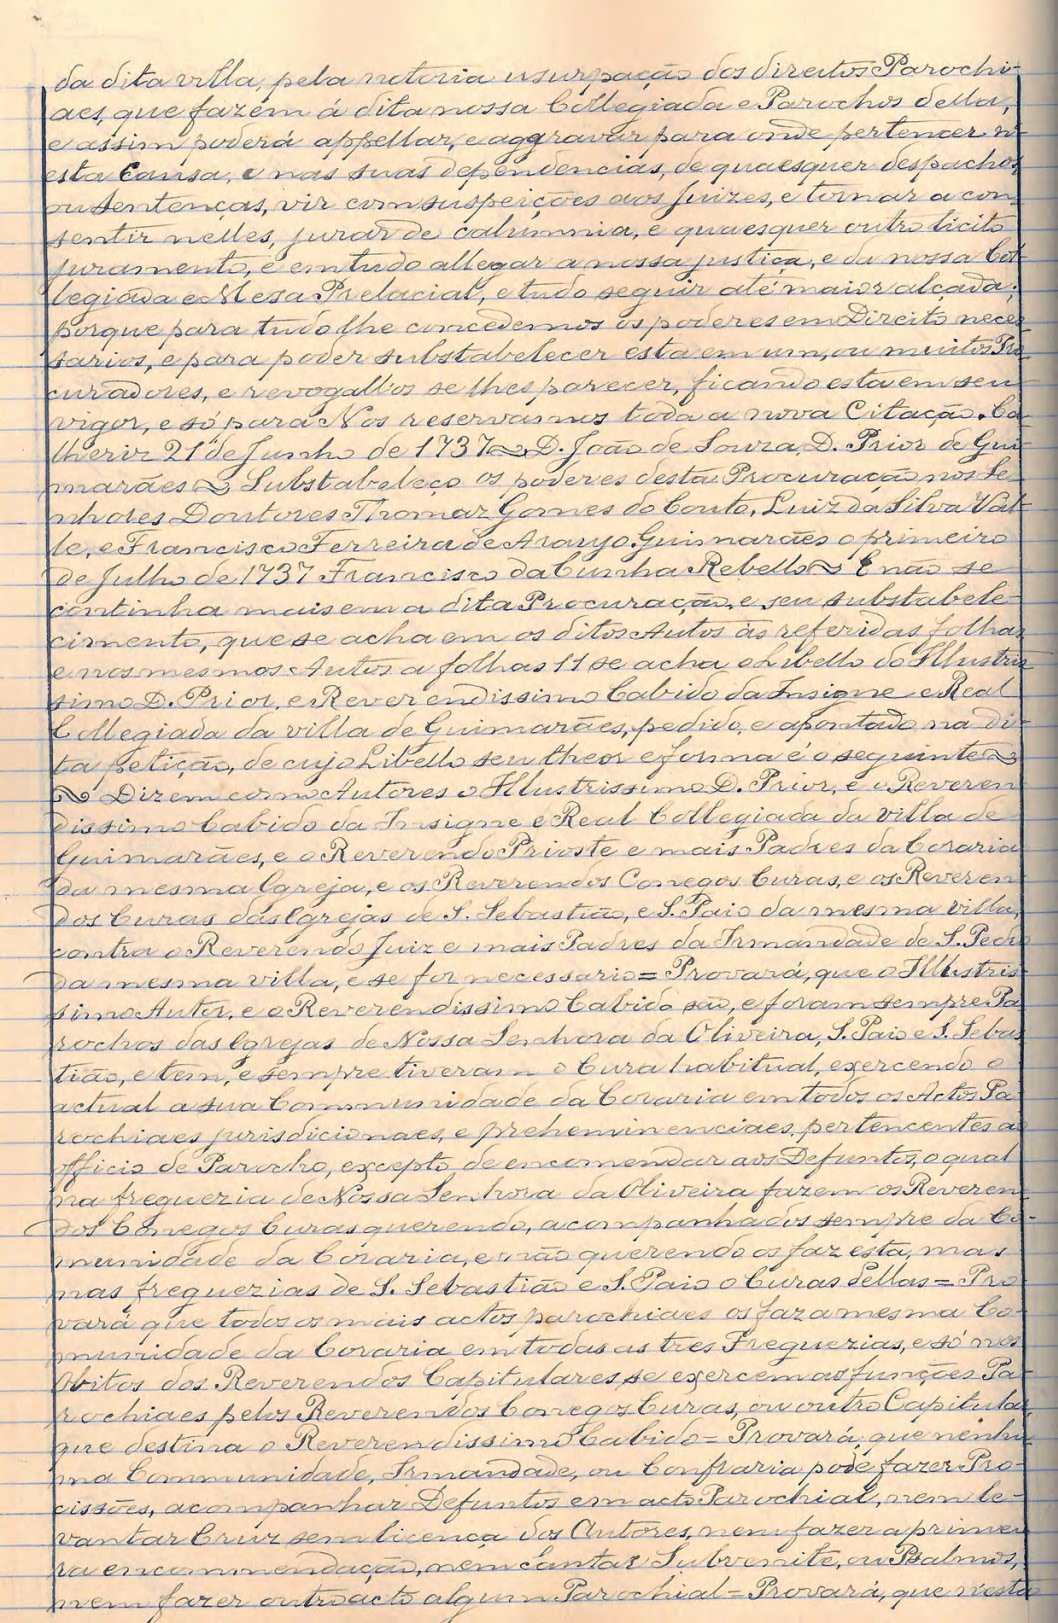 da dita villa, pela notoria usurpação dos direitos Parochi-
aes, que fazem á dita nossa Collegiada e Parochos della,
e assim poderá appellar, e aggravar para onde pertencer n'
esta Causa, e nas suas dependencias, de quaesquer despachos,
ou sentenças, vir com suspeições aos Juizes, e tornar a con
sentir nelles, jurar de calumnia, e quaesquer outro licito
juramento, e em tudo allegar a nossa justiça, e da nossa Col
legiada e Mesa Prelacial, e tudo seguir até maior alçada;
porque para tudo lhe concedemos os poderes em Direito neces
sarios, e para poder substabelecer esta em um, ou muitos Pro
curadores, e revogallos se lhes parecer, ficando esta em seu
vigor, e só para Nos reservamos toda a nova Citação. Ca
lheriz 21 de Junho de 1737 ~ D. João de Souza, D. Prior de Gui
marães ~ Substabeleço os poderes desta Procuração nos Se
nhores Doutores Thomaz Gomes do Couto, Luiz da Silva Val
le, e Francisco Ferreira de Araujo. Guimarães o primeiro
de Julho de 1737 Francisco da Cunha Rebello ~ E não se
continha mais em a dita Procuração, e seu substabele
cimento, que se acha em os ditos Autos ás referidas folhas
e nos mesmos Autos a folhas 11 se acha o Libello do Illustris
simo D. Prior, e Reverendissimo Cabido da Insigne e Real
Collegiada da villa de Guimarães, pedido, e apontado na di
ta petição, de cujo Libello seu theor e forma é o seguinte ~
~ Dizem como Autores o Illustrissimo D. Prior, e o Reveren
dissimo Cabido da Insigne e Real Collegiada da villa de
Guimarães, e o Reverendo Prioste e mais Padres da Coraria
da mesma Igreja, e os Reverendos Conegos Curas, e os Reveren
dos Curas das Igrejas de S. Sebastião, e S. Paio da mesma villa,
contra o Reverendo Juiz e mais Padres da Irmandade de S. Pedro
da mesma villa, e se for necessario = Provará, que o Illustris
simo Autor, e o Reverendissimo Cabido são, e foram sempre Pa
rochos das Igrejas de Nossa Senhora da Oliveira, S. Paio e S. Sebas
tião, e tem, e sempre tiveram o Cura habitual, exercendo o
actual a sua Communidade da Coraria em todos os Actos Pa
rochiaes jurisdicionaes, e preheminenciaes, pertencentes ao
officio de Parocho, excepto de encomendar aos Defuntos, o qual
na freguezia de Nossa Senhora da Oliveira fazem os Reveren
dos Conegos Curas querendo, acompanhados sempre da Co-
munidade da Coraria, e não querendo os faz esta, mas
nas freguezias de S. Sebastião e S. Paio o Curas dellas = Pro
vará que todos os mais actos parochiaes os faz a mesma Co-
munidade da Coraria em todas as tres Freguezias, e só nos
obitos dos Reverendos Capitulares, se exercem as funções Pa
rochiaes pelos Reverendos Conegos Curas, ou outro Capitular
que destina o Reverendissimo Cabido = Provará que nenhu
ma Communidade, Irmandade, ou Confraria pode fazer Pro-
cissões, acompanhar Defuntos em acto Parochial, nem le-
vantar Cruz sem licença dos Autores, nem fazer a primei
ra encommendação, nem Cantar Subvenite, ou Psalmos,
nem fazer outro acto algum Parochial = Provará, que nesta